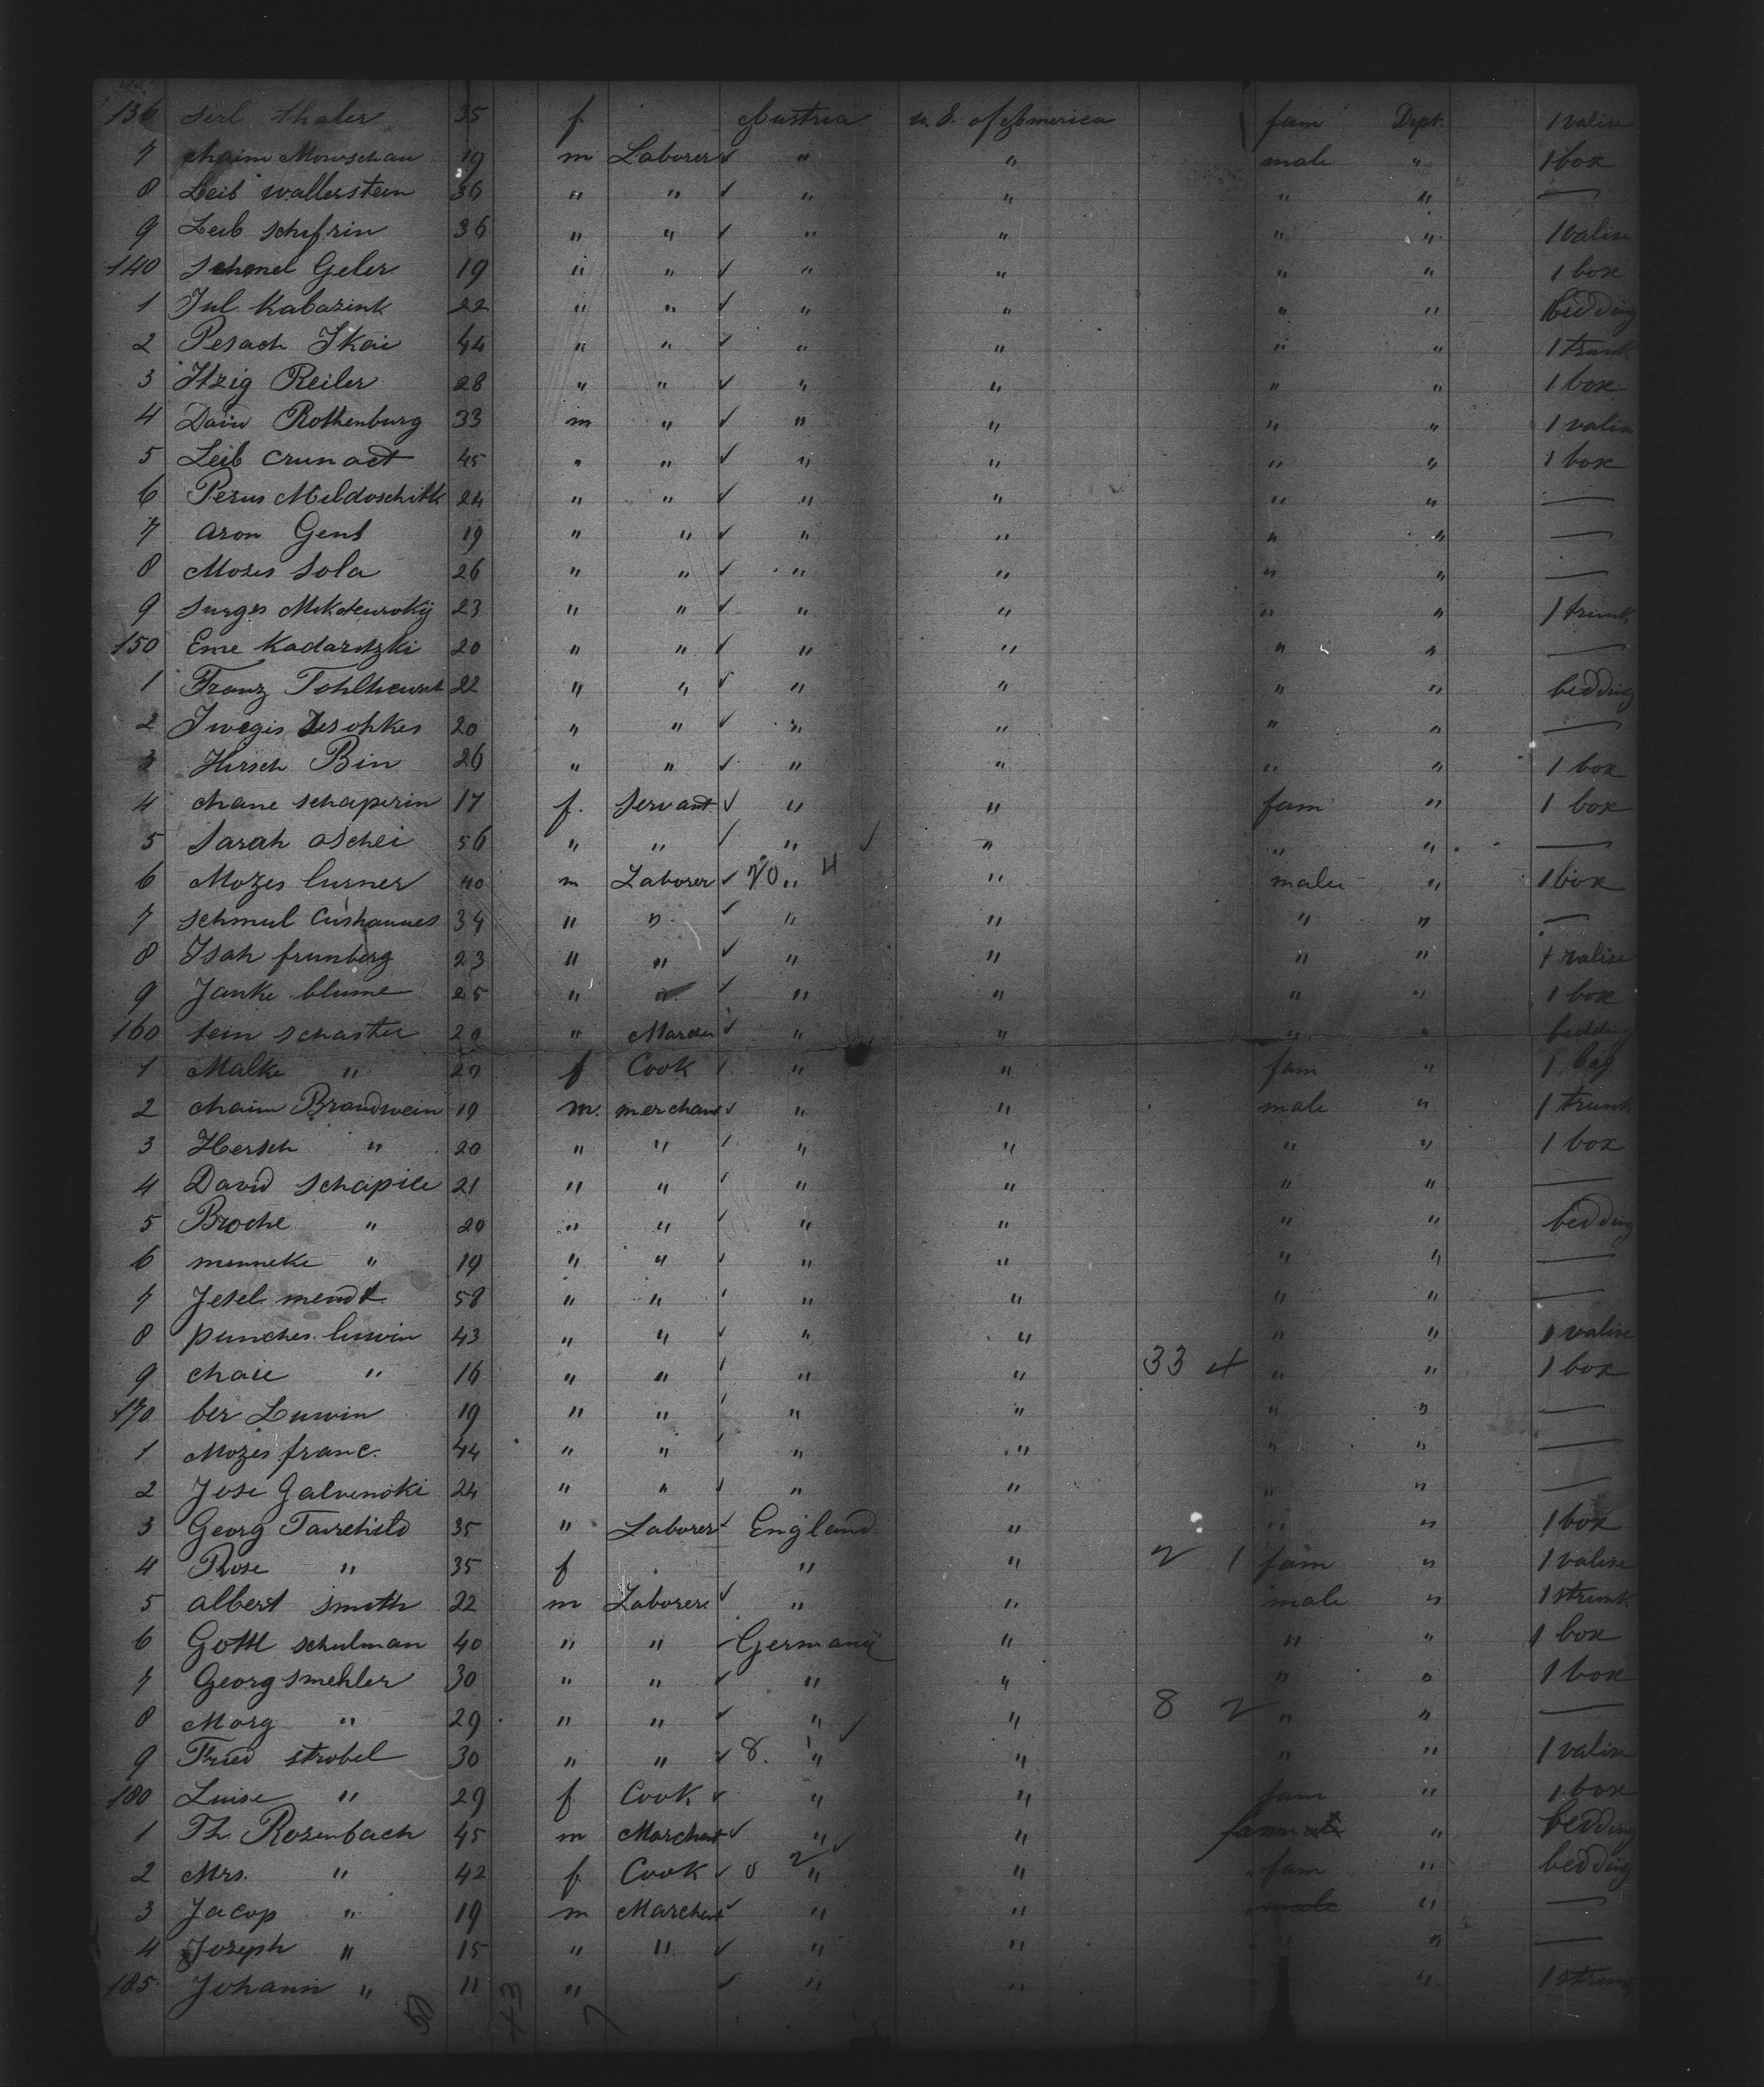 136 serl thaler 35 f Austria U. S. of America fam Dept. 1 valise
7 chaim Mowschau 19 m Laborer ✓ " " male " 1 box
8 Leib wallerstein 36 " " ✓ " " " " —
9 Leib schifrin 36 " " ✓ " " " " 1 valise
140 Schmel Geler 19 " " ✓ " " " " 1 box
1 Jul. Kabazink 22 " " ✓ " " " " bedding
2 Pesach Skai 44 " " ✓ " " " " 1 trunk
3 Itzig Reiler 28 " " ✓ " " " " 1 box
4 David Rothenburg 33 m " ✓ " " " " 1 valise
5 Leib 45 " " ✓ " " " " 1 box
6 Perus Mildoschitk 24 " " ✓ " " " " —
7 Aron Gens 19 " " ✓ " " " " —
8 Mozes Sola 26 " " ✓ " " " " —
9 23 " " ✓ " " " " 1 trunk
150 Eme Kadaritzki 20 " " ✓ " " " " —
1 Franz 22 " " ✓ " " " " bedding
2 20 " " ✓ " " " " —
3 Hirsch Bin 26 " " ✓ " " " " 1 box
4 chane schaperin 17 f. Servant ✓ " " fam " 1 box
5 Sarah aschei 56 " " ✓ " ✓ " " " —
6 Mozes lurner 40 m Laborer ✓ 70 " 4 " male " 1 box
7 schmul Cushannes 34 " " ✓ " " " " —
8 Isah frunberg 23 " " ✓ " " " " 1 valise
9 Janke blume 25 " " ✓ " " " " 1 box
160 fein schaster 20 " ✓ " " " " bedding
1 Malke " 20 f Cook ✓ " " fam " 1 bag
2 chaim Brandwein 19 m. merchant ✓ " " male " 1 trunk
3 Hersch " 20 " " ✓ " " " " 1 box
4 David Schapile 21 " " ✓ " " " " —
5 Broche " 20 " " ✓ " " " " bedding
6 menneke " 19 " " ✓ " " " " —
7 Jesel mendt 58 " " ✓ " " " " —
8 punches luwin 43 " " ✓ " " " " 1 valise
9 chaie " 16 " " ✓ " " 33 4 " " 1 box
170 ber Luwin 19 " " ✓ " " " " —
1 Mozes franc. 44 " " ✓ " " " " —
2 Jose Galvenski 24 " " ✓ " " " " —
3 Georg Tairchild 35 " Laborer ✓ England " " " 1 box
4 Rose " 35 f " " 2 1 fam " 1 valise
5 albert smith 22 m Laborer ✓ " " male " 1 strunk
6 Gottl schulman 40 " " ✓ Germany " " " 1 box
7 Georg smehler 30 " " ✓ " " " " 1 box
8 Marg " 29 " " ✓ " ✓ " 8 2 " " —
9 Fried strobel 30 " " ✓ 8. " " " " 1 valise
180 Luise " 29 f Cook ✓ " " fam " 1 box
1 Th. Rosenbach 45 m Marchent ✓ " ✓ " " bedding
2 Mrs. " 42 f Cook ✓ 0 2 " " fam " bedding
3 Jacop " 19 m Marchent ✓ " " male " —
4 Joseph " 15 " " ✓ " " " " —
185. Johann " 11 " ✓ " " " 1 strunk
50 43 7